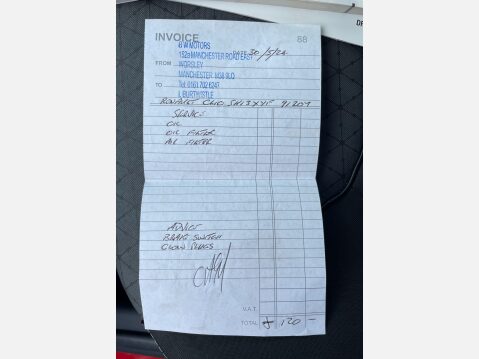 INVOICE 88
B W MOTORS
DATE 30/5/24
152a MANCHESTER ROAD EAST
FROM WORSLEY
MANCHESTER M38 9LQ
TO Tel: 0161 702 6247
I. BURTWISTLE
RENAULT CLIO 91207
SERVICE
OIL
OIL FILTER
AIR FILTER
ADVICE
BRAKE SWITCH
GLOW PLUGS
V.A.T.
TOTAL £ 120 —